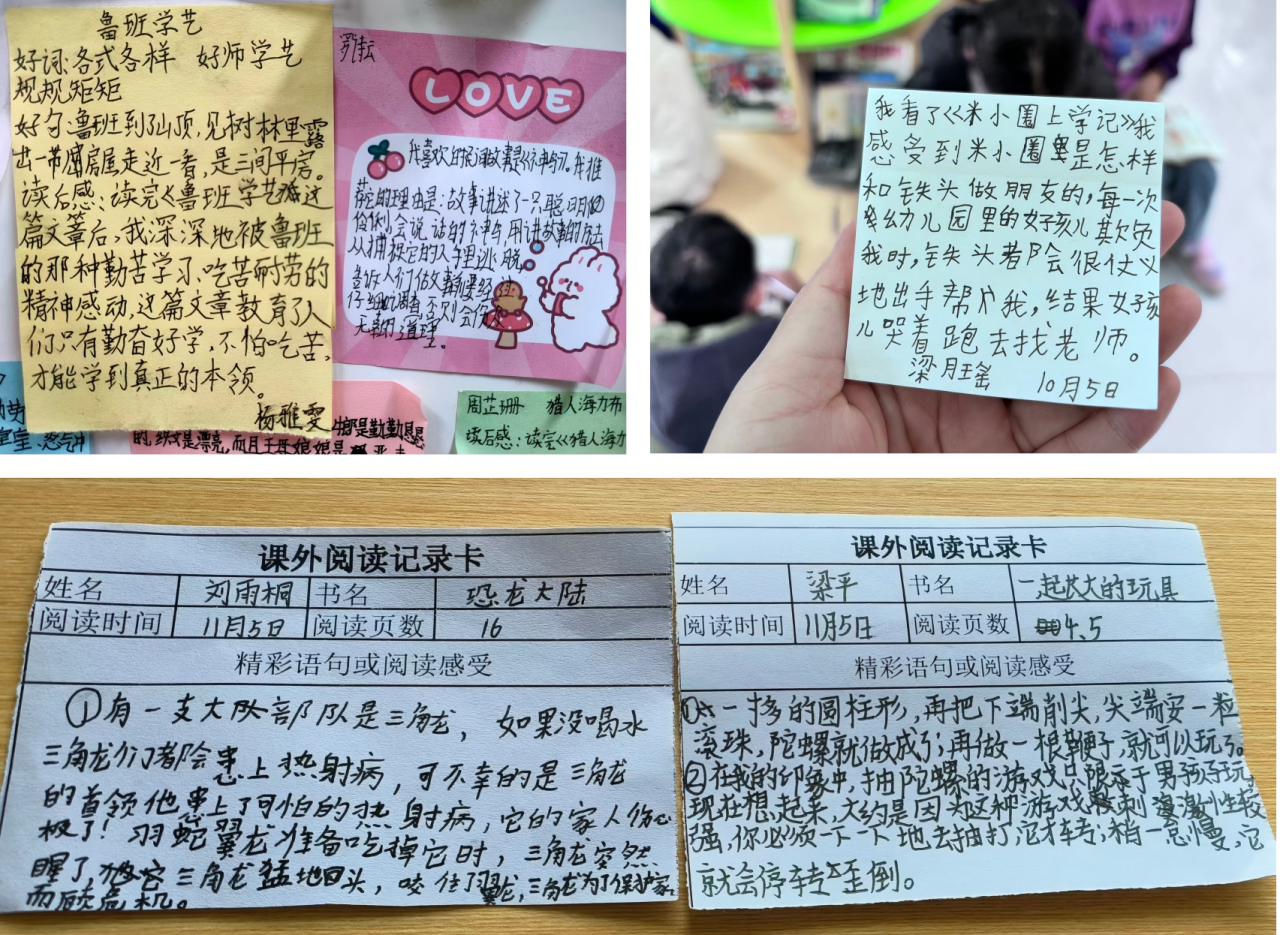 鲁班学艺
好词:各式各样 好师学艺
规规矩矩
好句:鲁班到了山顶,见树林里露
出一带房屋,走近一看,是三间平房。
读后感:读完《鲁班学艺》这
篇文章后,我深深地被鲁班
的那种勤苦学习、吃苦耐劳的
精神感动,这篇文章教育了人
们只有勤奋好学,不怕吃苦,
才能学到真正的本领。
杨雅雯
LOVE
我喜欢的民间故事是
荐它的理由是:故事讲述了一只聪明
会说话的 用讲故事的方法
从捕捉它的人手里逃脱,
告诉人们做事要
仔细 否则会
的道理。
的,织 是漂亮,而且王母娘娘是
都是勤勤恳恳
周芷珊 猎人海力布
读后感:读完《猎人海力
我看了《米小圈上学记》我
感受到米小圈是怎样
和铁头做朋友的,每一次
幼儿园里的女孩儿欺负
我时,铁头都会很仗义
地出手帮我,结果女孩
儿哭着跑去找老师。
梁月瑶 10月5日
课外阅读记录卡
姓名 刘雨桐 书名 恐龙大陆
阅读时间 11月5日 阅读页数 16
精彩语句或阅读感受
①有一支大队部队是三角龙,如果没喝水
三角龙们都会患上热射病,可不幸的是三角龙
的首领他患上了可怕的热射病,它的家人伤心
极了!羽蛇翼龙准备吃掉它时,三角龙突然
醒了,三角龙猛地回头,咬住了翼龙,三角龙为了保护家
而 危机。
课外阅读记录卡
姓名 梁平 书名 一起长大的玩具
阅读时间 11月5日 阅读页数 4、5
精彩语句或阅读感受
①一扌多的圆柱形,再把下端削尖,尖端安一粒
滚珠,陀螺就做成了;再做一根鞭子,就可以玩了。
②在我的印象中,抽陀螺的游戏只限示于男孩子玩,
现在想起来,大约是因为这种游戏刺激性较
强,你必须一下一下地去抽打,它才转;稍一怠慢,它
就会停转歪倒。